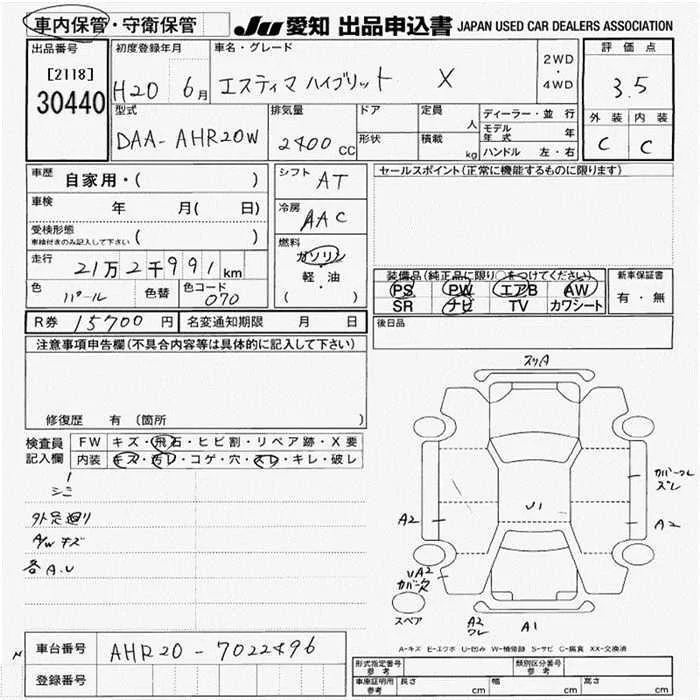 車内保管・守衛保管 JU 愛知 出品申込書 JAPAN USED CAR DEALERS ASSOCIATION
出品番号 初度登録年月 車名・グレード 2WD・4WD 評価点
[2118]
30440 H20 6月 エスティマ ハイブリット X 3.5
型式 排気量 ドア 定員 人 ディーラー・並行 外装 内装
DAA-AHR20W 2400cc 形状 積載 kg モデル年式 年 C C
ハンドル 左・右
車歴 自家用・( ) シフト AT セールスポイント(正常に機能するものに限ります)
車検 年 月( 日) 冷房 AAC
受検形態 ( )
車検付きのみ記入して下さい
燃料 ガソリン・軽・油 ( )
走行 21万2千991km
装備品(純正品に限り○をつけてください) 新車保証書
色 パール 色替 色コード 070
PS PW エアB AW 有・無
SR ナビ TV カワシート
R券 15700円 名変通知期限 月 日 後日品
注意事項申告欄(不具合内容等は具体的に記入して下さい)
修復歴 有 (箇所 )
検査員記入欄 FW キズ・飛石・ヒビ割・リペア跡・X要
内装 キズ・汚レ・コゲ・穴・スレ・キレ・破レ
シミ
外足廻り
A/W キズ
各A.U
スリA
カバーワレ
ズレ
U1
A2 A2
UA2
スペア
A2
ワレ
A1
A-キズ E-エクボ U-凹み W-補修跡 S-サビ C-腐食 XX-交換済
車台番号 AHR20-7022496
登録番号
形式指定番号 参考 類別区分番号 参考
車庫証明用 参考 長さ cm 幅 cm 高さ cm